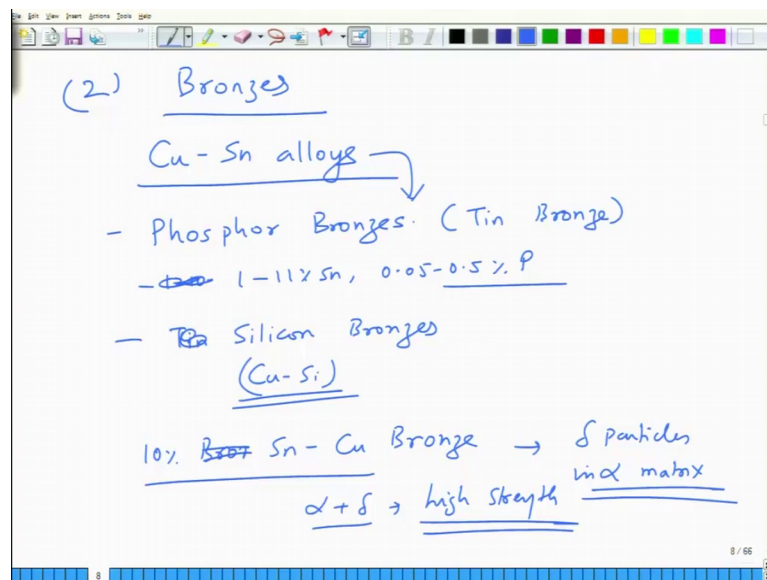 File Edit View Insert Actions Tools Help
B I
(2) Bronzes
Cu-Sn alloys
- Phosphor Bronzes. (Tin Bronze)
- 1-11% Sn, 0.05-0.5% P
- Silicon Bronzes
(Cu-Si)
10% Sn-Cu Bronze → δ particles
in α matrix
α+δ → high strength
8/66
8